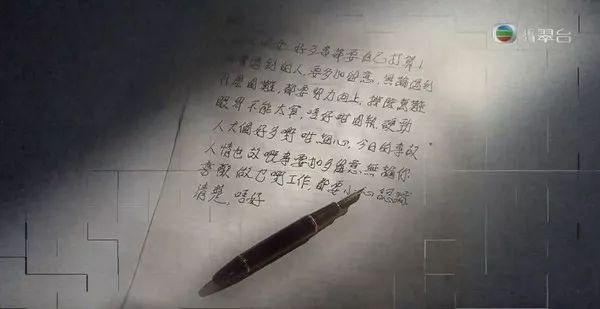 翡翠台
女,好多事都要自己打算!
遇到的人,要多加留意,無論遇到
什麼困難,都要努力向上,排除萬難
眼界不能太窄,唔好咁固執,硬勁
人大個好多嘢咁細心,今日的事故
人情世故嘅事要加多留意無論你
喜歡做乜嘢工作,都要小心認識
清楚,唔好